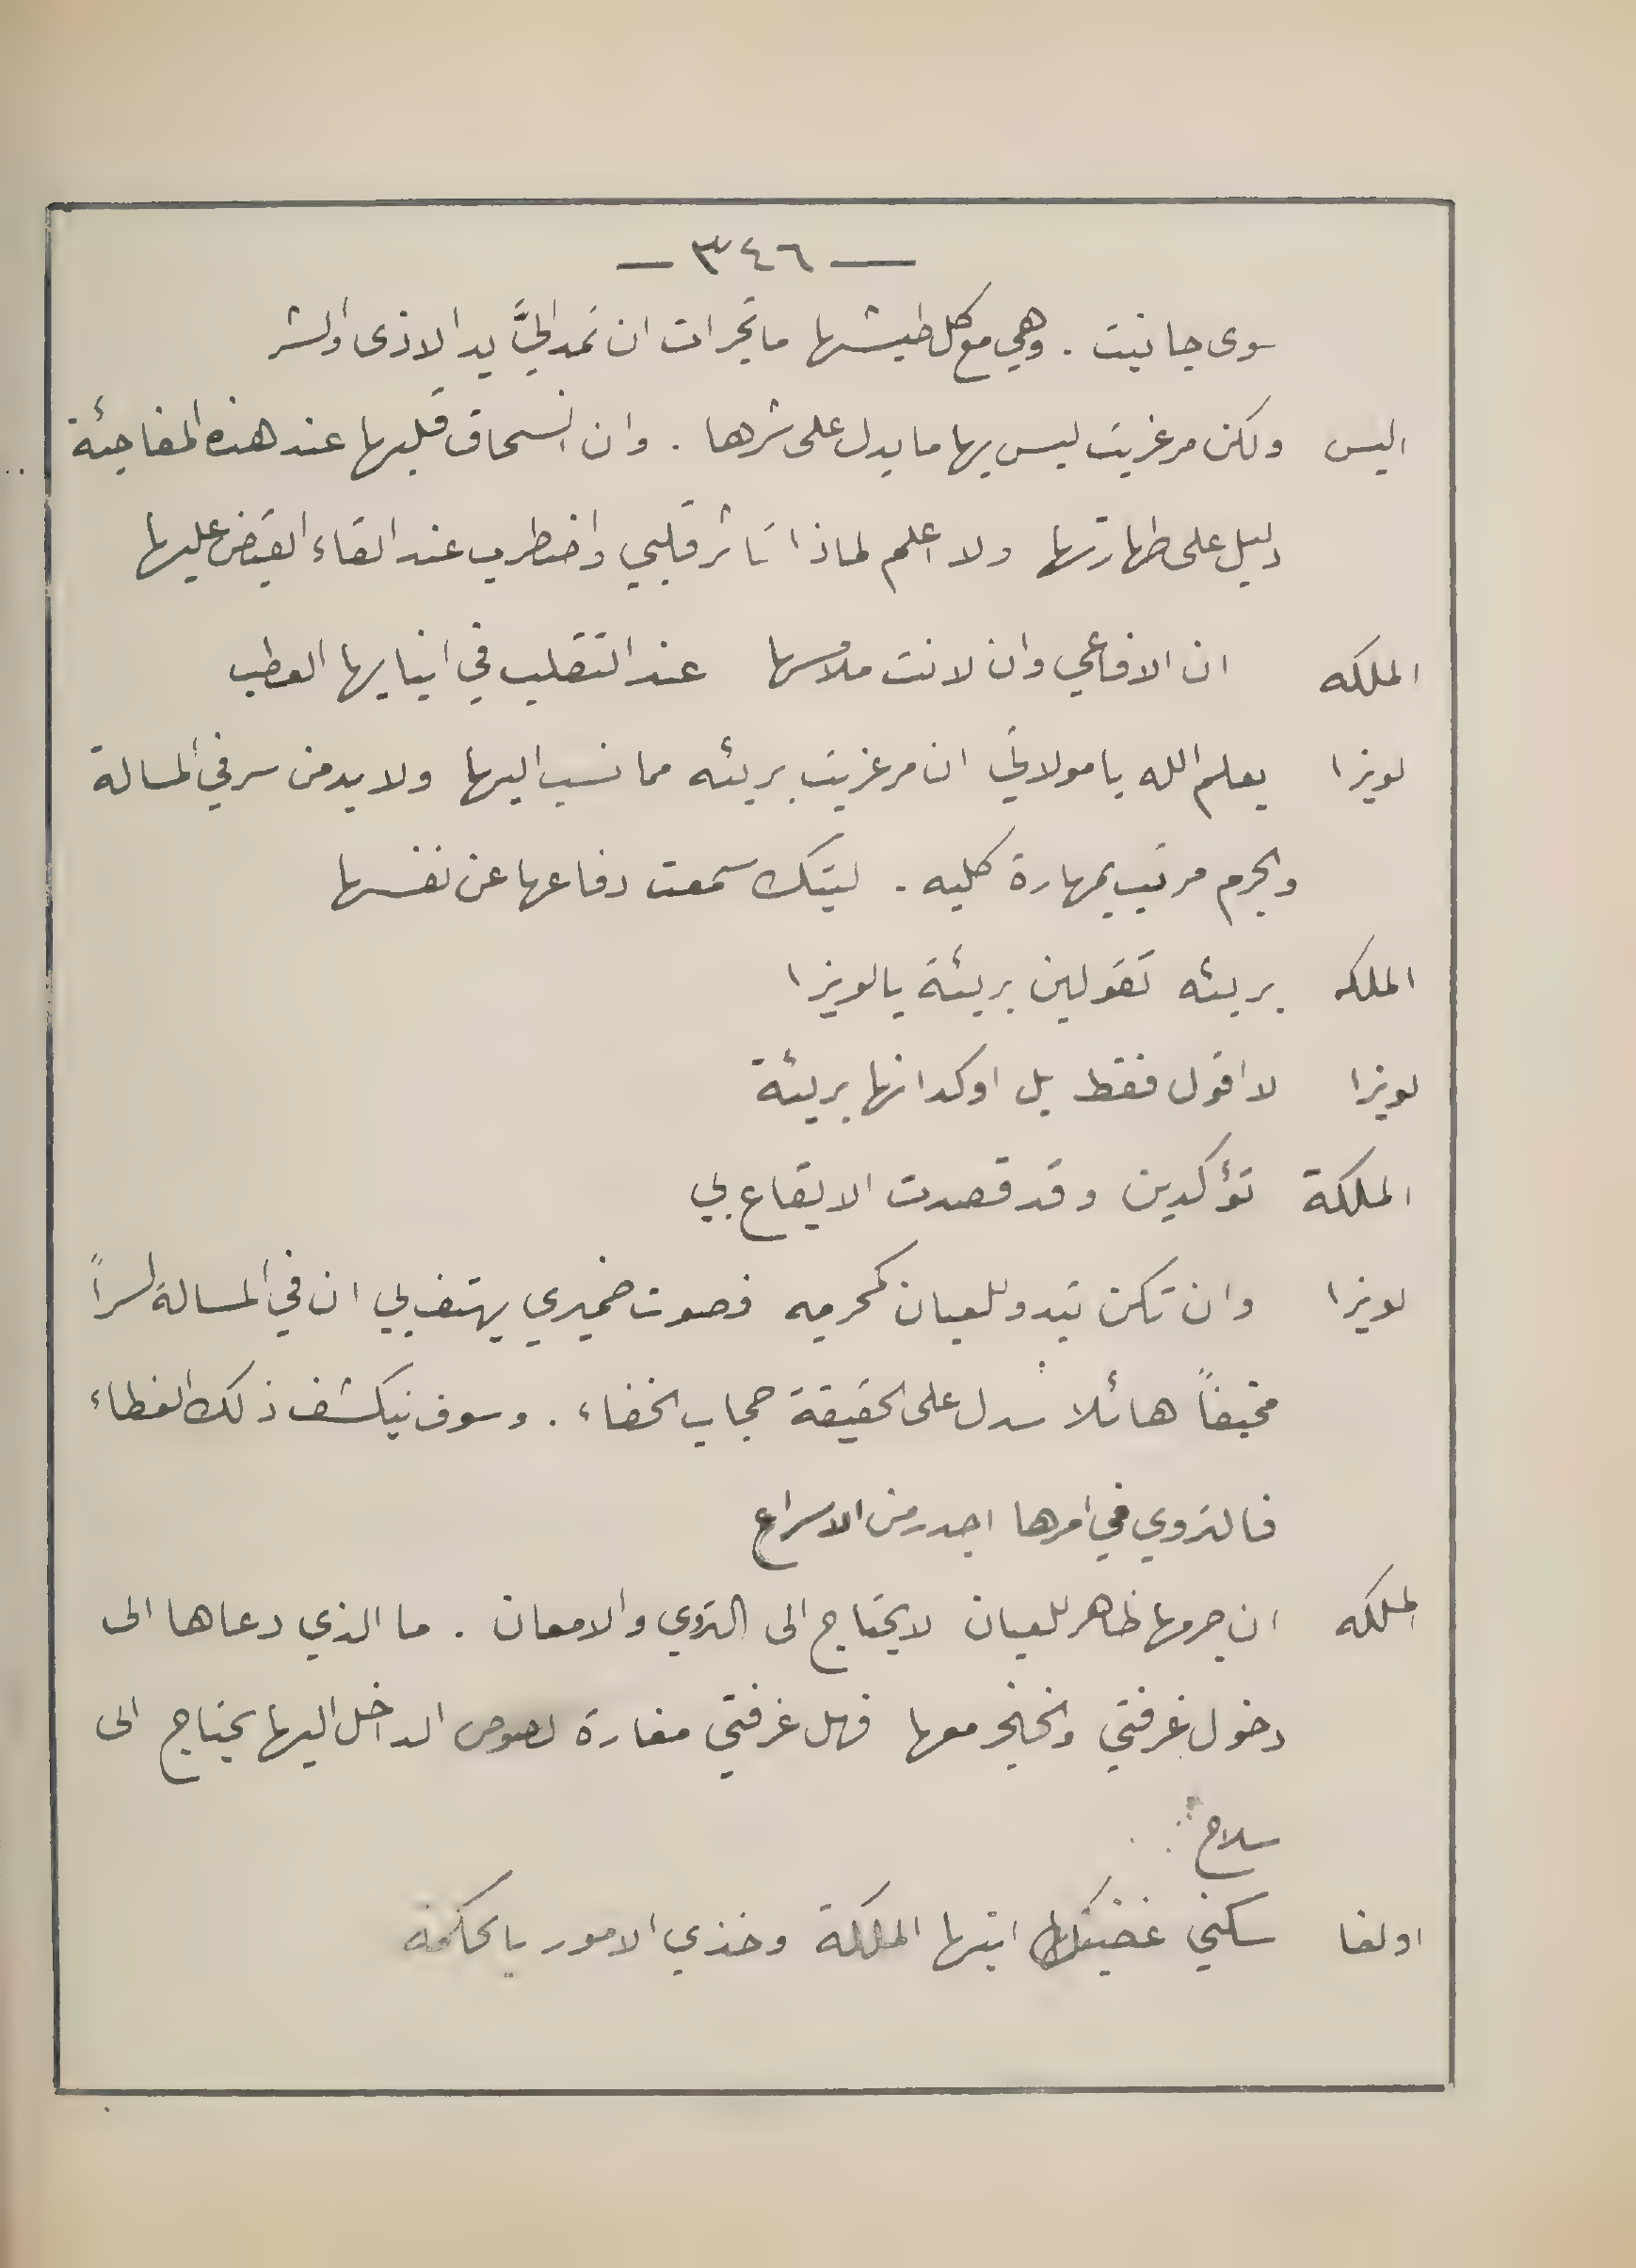 — ٣٤٦ —
سوى جانيت . وهي مع كل طيشها ما تجرات ان تمد اليَّ يد الاذى والشر
اليس ولكن مرغريت ليس بها ما يدل على شرها . وان انسحاق قلبها عند هذه المفاجئة
دليل على طهارتها ولا اعلم لماذا تأثر قلبي واضطرب عند القاء القبض عليها
الملكه ان الافاعي وان لانت ملامسها عند التقلب في انيابها العطب
لويزا يعلم الله يا مولاتي ان مرغريت بريئه مما نسب اليها ولا بد من سر في المسالة
والجرم مرتب بمهارة كليه . ليتك سمعت دفاعها عن نفسها
الملكه بريئه تقولين بريئة يا لويزا
لويزا لا اقول فقط بل اوكد انها بريئة
الملكة تؤكدين وقد قصدت الايقاع بي
لويزا وان تكن تبدو للعيان كمجرمه فصوت ضميري يهتف بي ان في المسالة لسراً
مخيفاً هائلا سدل على الحقيقة حجاب الخفاء . وسوف ينكشف ذلك الغطاء
فالتروي في امرها اجدر من الاسراع
الملكه ان جرمها ظاهر للعيان لا يحتاج الى التروي والامعان . ما الذي دعاها الى
دخول غرفتي والخنجر معها فهل غرفتي مغارة لصوص الداخل اليها يحتاج الى
سلاح
اولغا سكني غضبك ايتها الملكة وخذي الامور بالحكمه